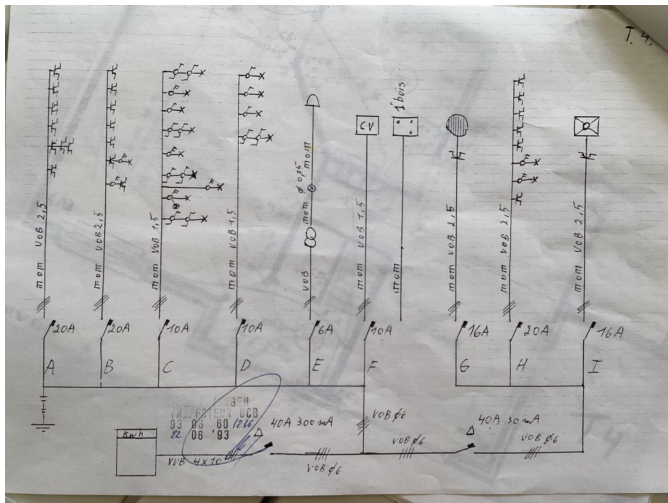 T.4.
1 buis
CV
mom VOB 2,5
mom VOB 2,5
mom VOB 1,5
mom VOB 1,5
VOB
mom
mom
mom VOB 1,5
mom
mom VOB 2,5
mom VOB 2,5
mom VOB 2,5
20A
20A
10A
10A
6A
10A
16A
20A
16A
A
B
C
D
E
F
G
H
I
INSPECTEUR OCB
93 03 60 1236
22 06 '93
Kwh
VOB 4x10
40A 300mA
VOB φ6
VOB φ6
VOB φ6
40A 30mA
VOB φ6